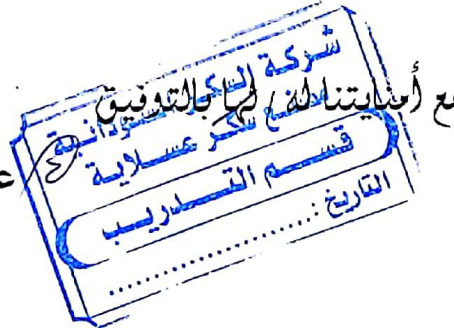 مع أمنياتنا له / لها بالتوفيق
شركة السكر السودانية
مصنع سكر عسلاية
قسم التدريب
التاريخ : ....................